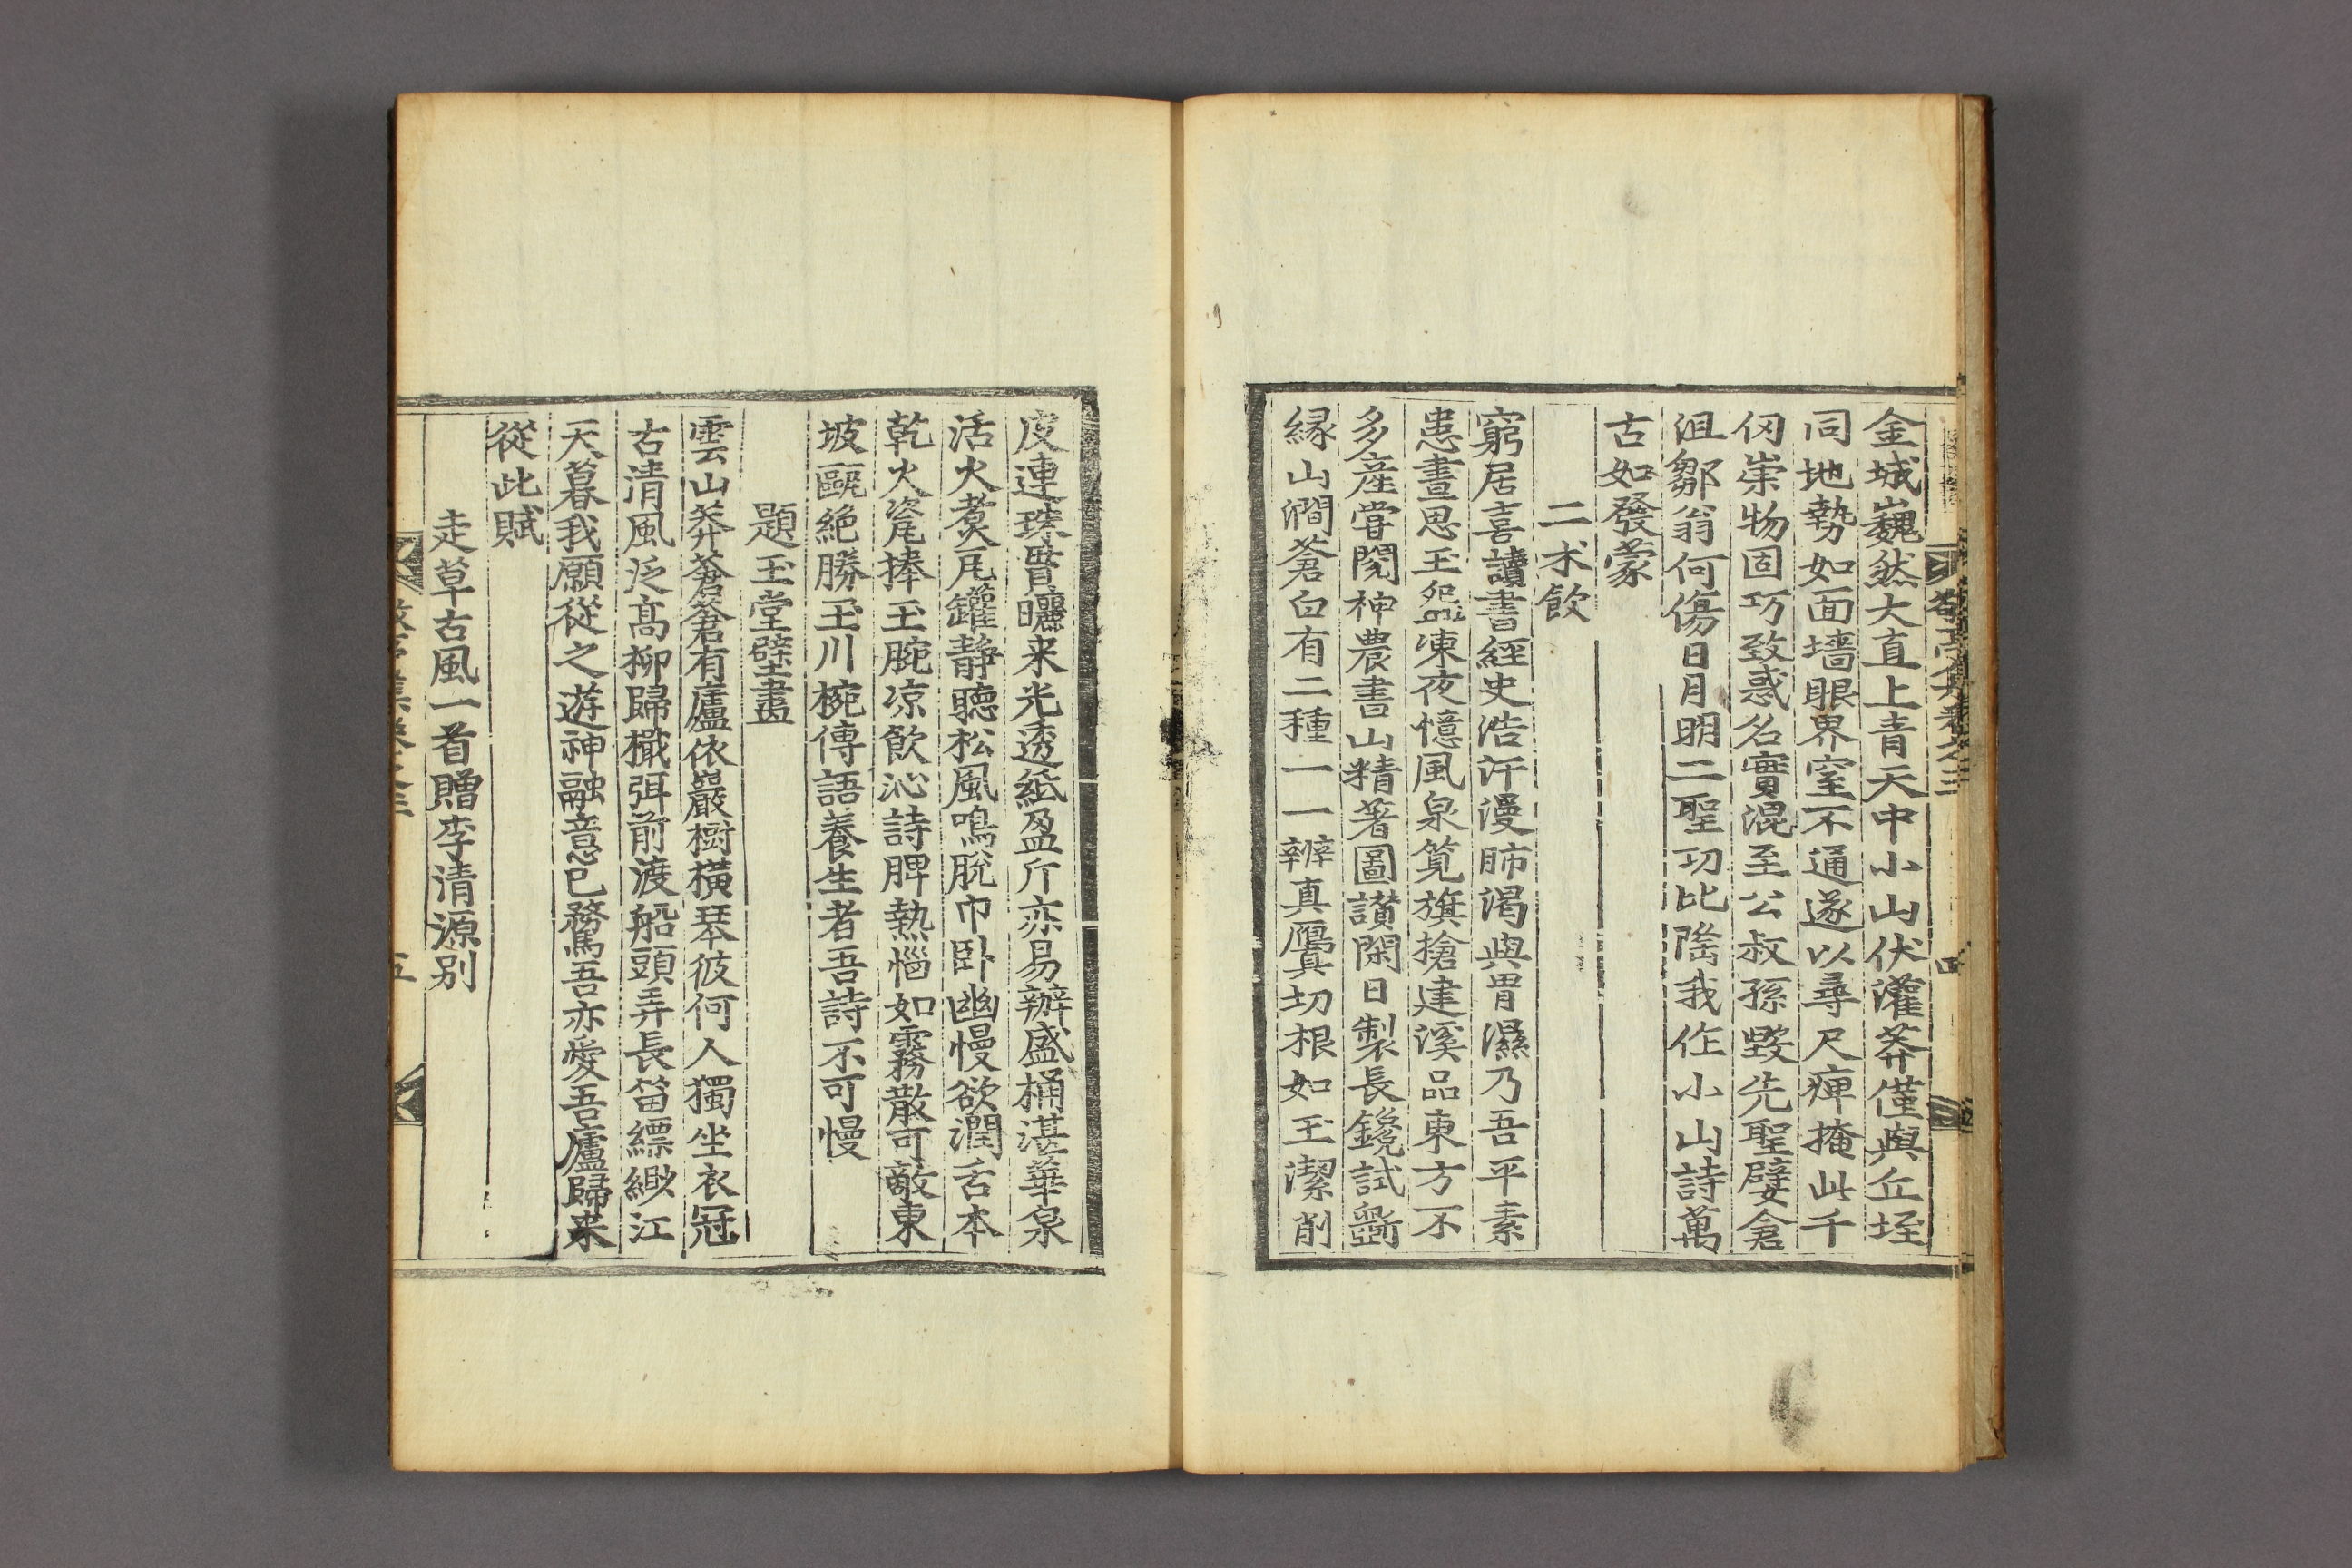 敬亭集卷之三
四
金城巍然大直上青天中小山伏灌莽僅與丘垤
同地勢如面墻眼界窒不通遂以尋尺痺掩此千
仞崇物固巧致惑名實混至公叔孫毀先聖嬖倉
沮鄒翁何傷日月明二聖功比隆我作小山詩萬
古如發蒙
二朮飮
窮居喜讀書經史浩汗漫肺渴與胃濕乃吾平素
患晝思玉盌凍夜憶風泉筧旗搶建溪品東方不
多產嘗閱神農書山精著圖讃閑日製長鑱試斸
緣山澗蒼白有二種一一辨真贗切根如玉潔削
皮連珠貫曬来光透紙盈斤亦易辦盛桶湛華泉
活火煮瓦罐靜聽松風鳴脫巾卧幽慢欲潤舌本
乾火瓷捧玉腕凉飮沁詩脾熱惱如霧散可敵東
坡甌絶勝玉川椀傳語養生者吾詩不可慢
題玉堂壁畫
雲山莽蒼蒼有廬依巖樹橫琴彼何人獨坐衣冠
古清風泛高柳歸檝弭前渡船頭弄長笛縹緲江
天暮我願從之遊神融意已騖吾亦愛吾廬歸来
從此賦
走草古風一首贈李清源别
敬亭集卷之三
五